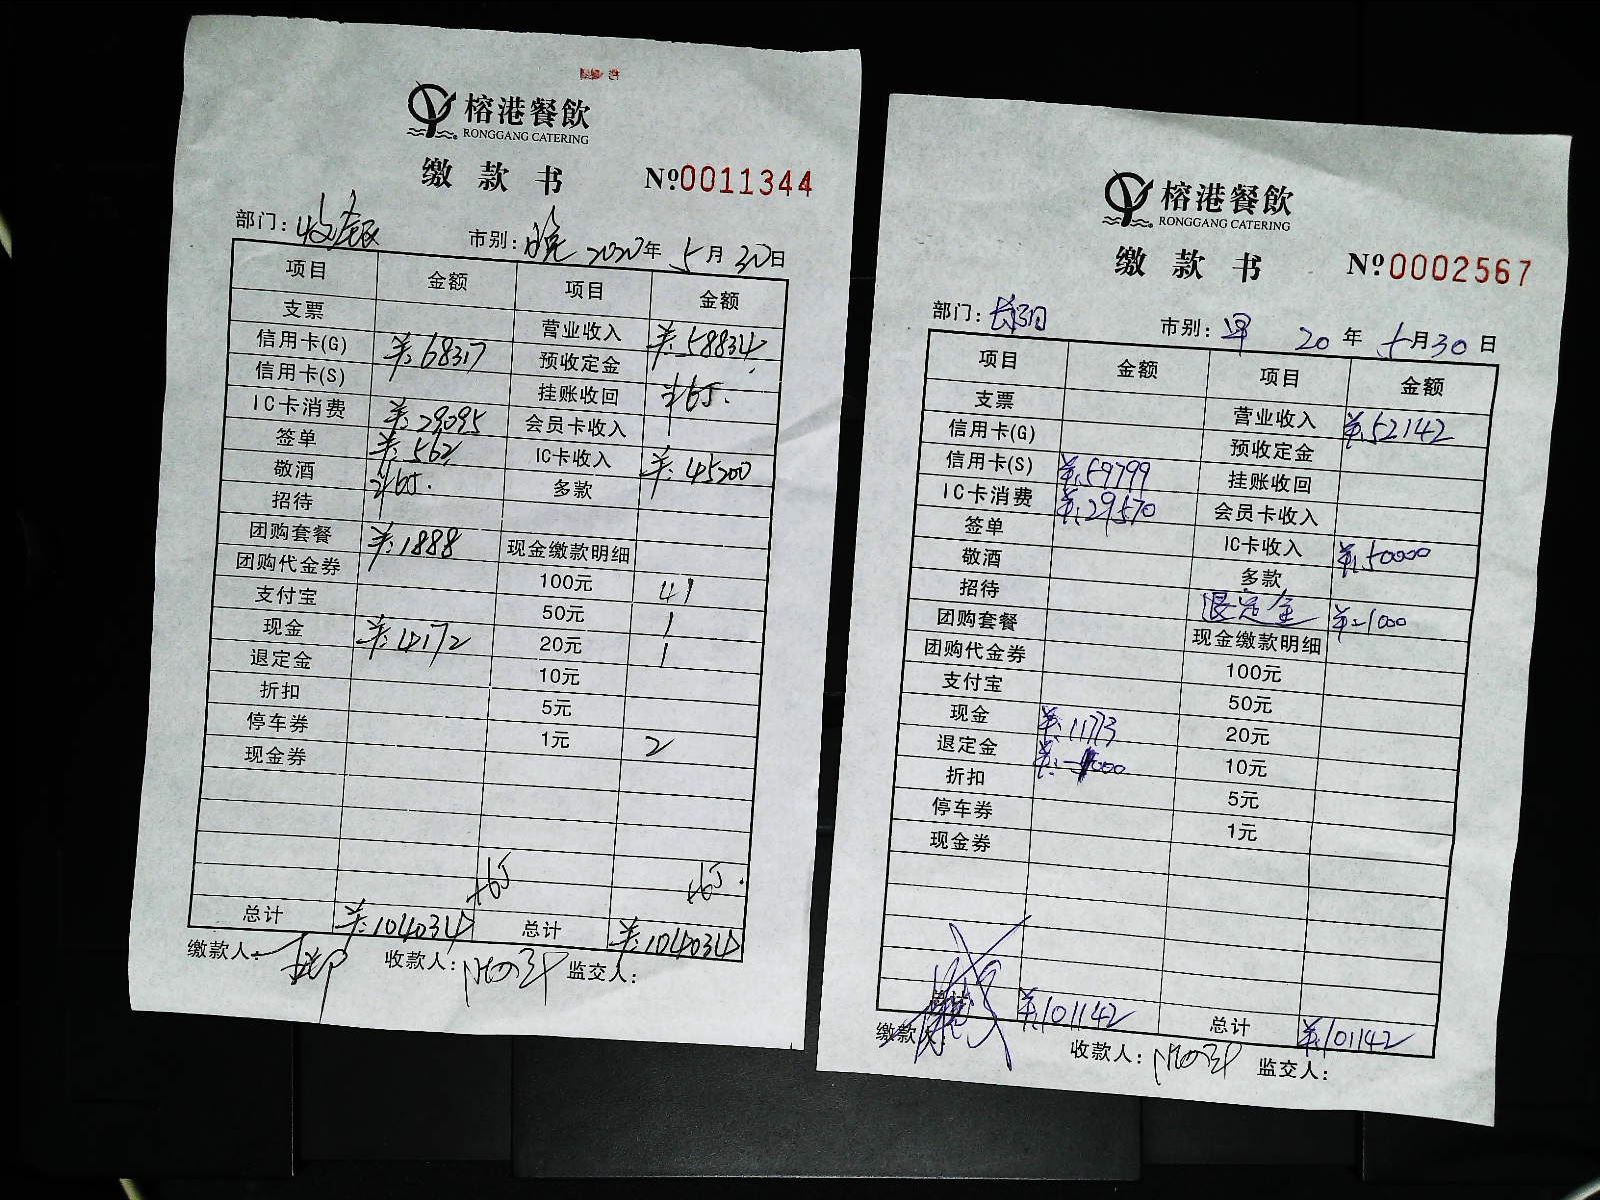 榕港餐飲
RONGGANG CATERING
缴款书 №0011344
部门：收银 市别：晚 2020年5月30日
项目 金额 项目 金额
支票 营业收入 ¥:58834
信用卡(G) ¥:68317 预收定金
信用卡(S) 挂账收回 +65.
IC卡消费 ¥:29095 会员卡收入
签单 ¥:562 IC卡收入 ¥:45200
敬酒 +65. 多款
招待
团购套餐 ¥:1888 现金缴款明细
团购代金券 100元 41
支付宝 50元 1
现金 ¥:4172 20元 1
退定金 10元
折扣 5元
停车券 1元 2
现金券
+65 +65.
总计 ¥:104034 总计 ¥:104034
缴款人: 收款人: 监交人:
榕港餐飲
RONGGANG CATERING
缴款书 №0002567
部门: 市别:早 20年5月30日
项目 金额 项目 金额
支票 营业收入 ¥:52142
信用卡(G) 预收定金
信用卡(S) ¥:59799 挂账收回
IC卡消费 ¥:29570 会员卡收入
签单 IC卡收入 ¥:50000
敬酒 多款
招待 退定金 ¥:-1000
团购套餐 现金缴款明细
团购代金券 100元
支付宝 50元
现金 ¥:11773 20元
退定金 10元
折扣 5元
停车券 1元
现金券
总计 ¥:101142 总计 ¥:101142
缴款人: 收款人: 监交人: